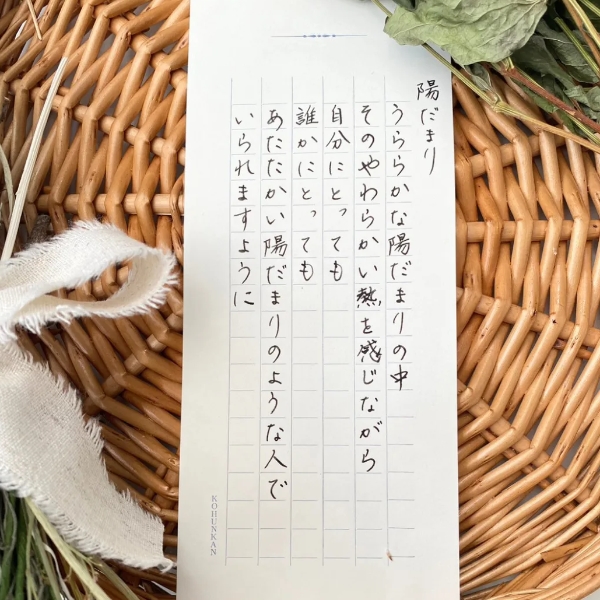 陽だまり
うららかな陽だまりの中
そのやわらかい熱を感じながら
自分にとっても
誰かにとっても
あたたかい陽だまりのような人で
いられますように
KOHUNKAN